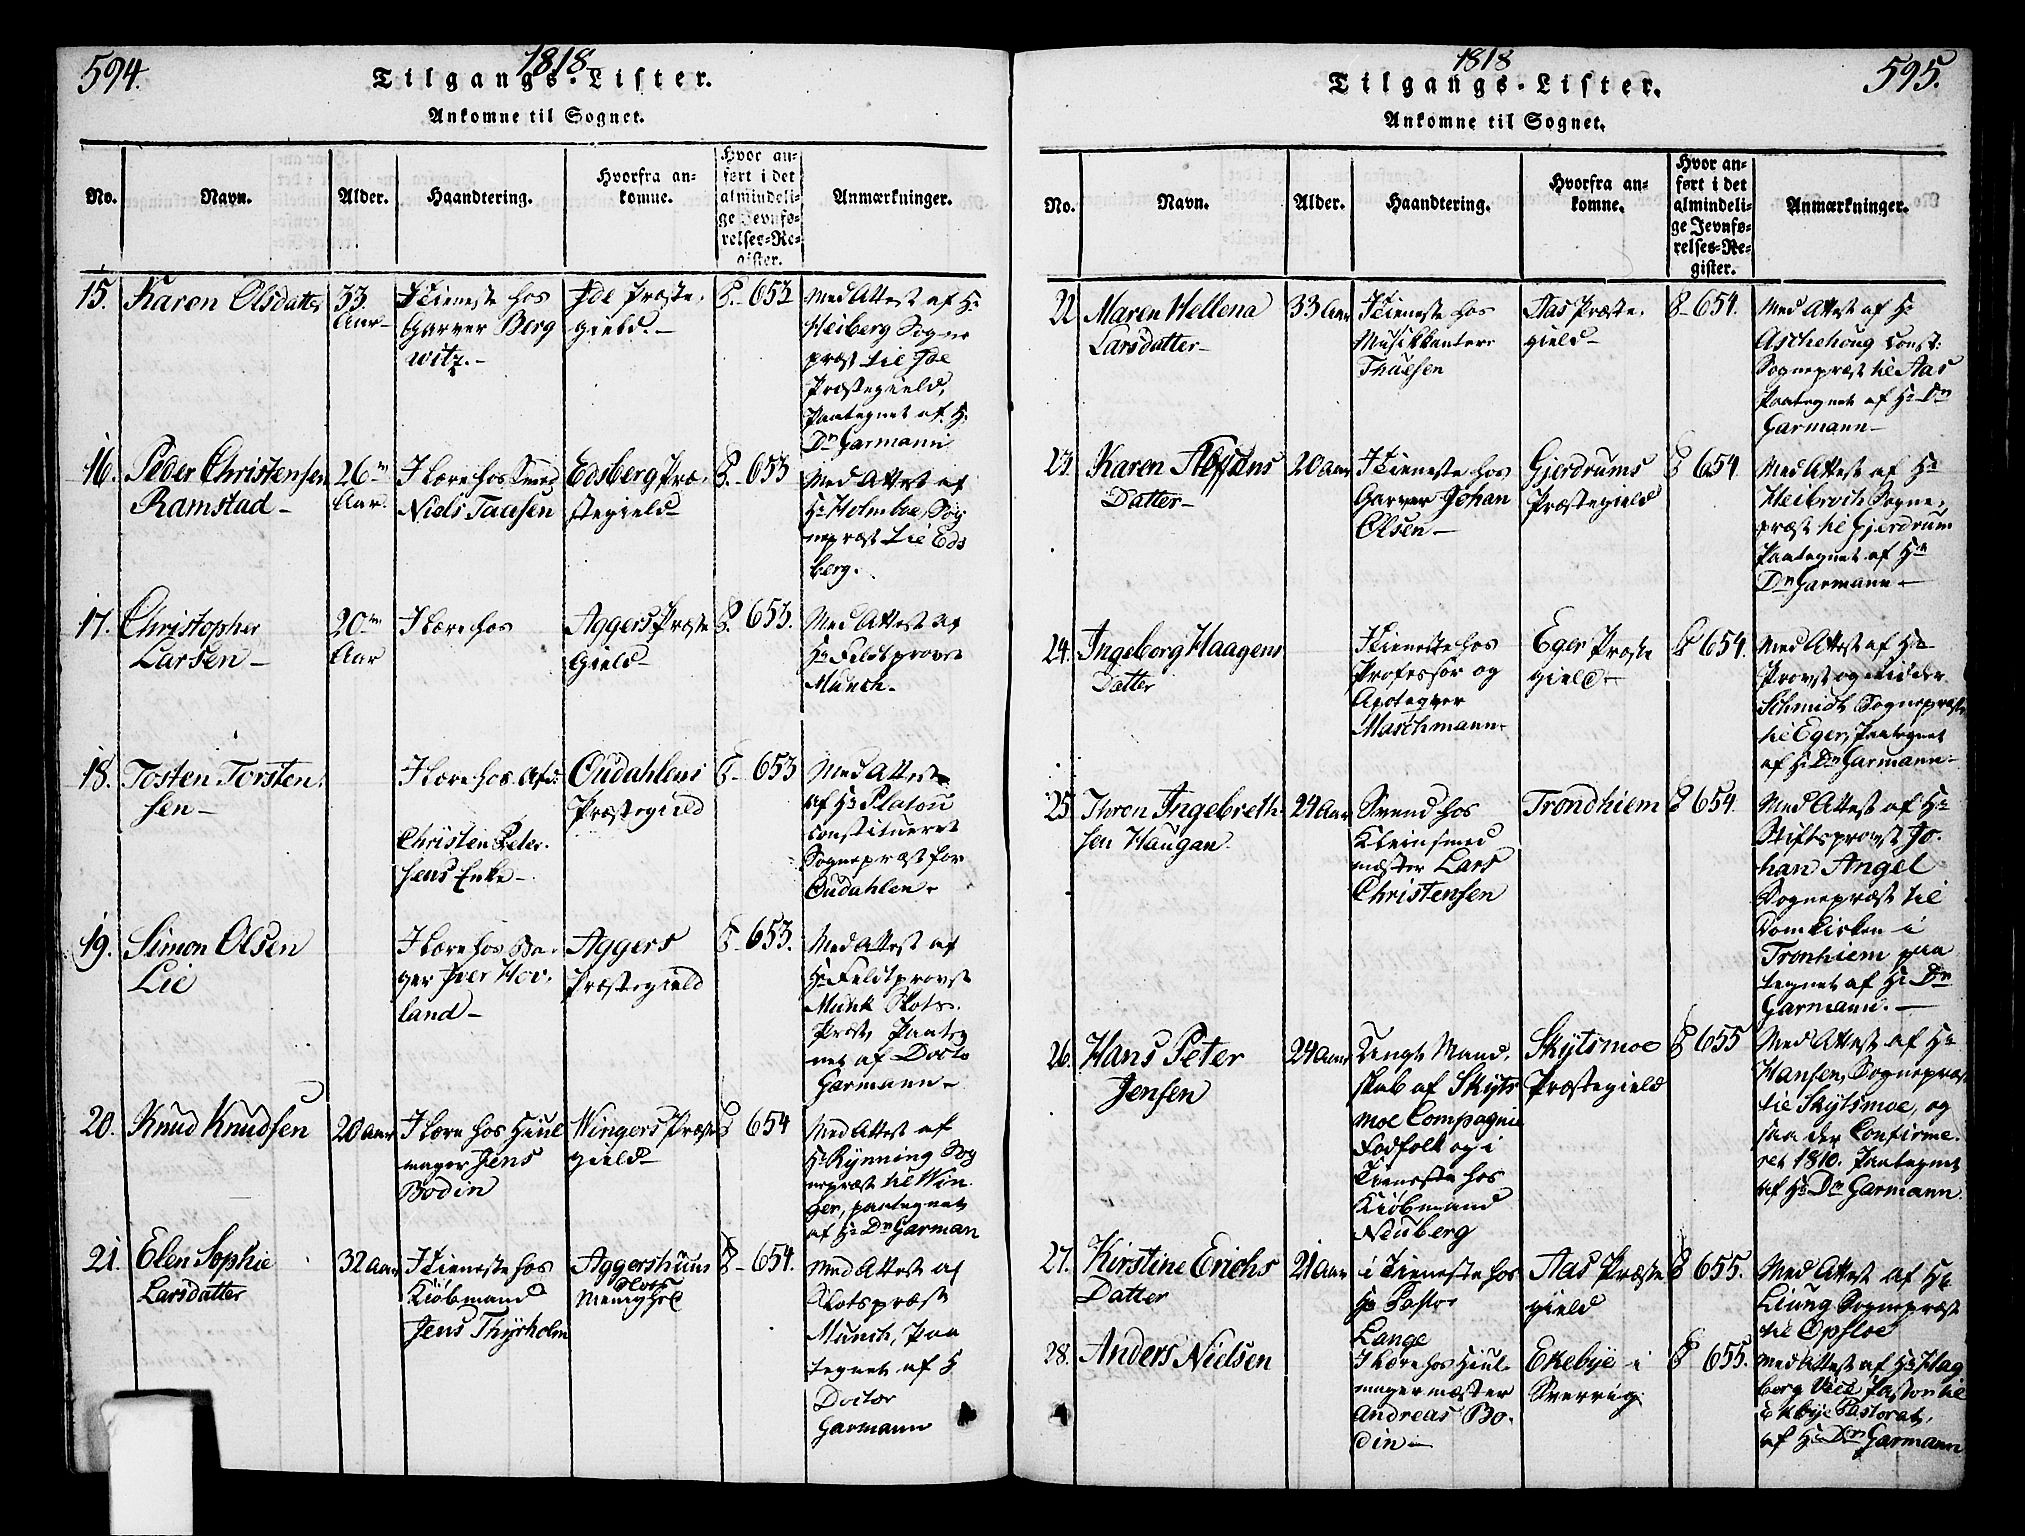 594.
1818
Tilgangs-Lister.
Ankomne til Sognet.
No.
Navn.
Alder.
Haandtering.
Hvorfra an-
komne.
Hvor an-
ført i det
almindeli-
ge Jevnfø-
relses-Re-
gister.
Anmærkninger.
15.
Karen Olsdatter
33
Aar
I Tieneste hos
Garver Berg
witz.
Ide Præste,
gield.
S. 653
Med Attest af Hr
Heiberg Sogne
præst til Ide
Præstegield,
Paategnet af H.
Dr Garmann
16.
Peder Christensen
Ramstad
26
Aar.
I Lære hos Smed
Niels Tausen
Edsberg Præ,
stegield
S. 653
Med Attest af
Hr Holmboe, Sog
nepræst til Eds
berg.
17.
Christopher
Larsen
20
Aar
I Lære hos
Aggers Præste
Gield
S. 653.
Med Attest af
Hr Feldtprovst
Munch.
18.
Tosten Torsten,
sen
I Lære hos Afd:
Christen Peter,
sens Enke
Oudahlens
Præstegield
S 653
Med Attest
af Hr Platou
constitueret
Sognepræst for
Oudahlen.
19.
Simon Olsen
Lie
I Lære hos Ba,
ger Iver Hov,
land
Aggers
Præstegield
S 653.
Med Attest af
Hr Feldtprovst
Munk Slots
Præst Paateg
net af Docto
Garmann
20.
Knud Knudsen
20 Aar
I Lære hos Hiul
mager Jens
Bodin
Wingers Præste
gield
S 654
Med Attest af
Hr Rynning Sog
nepræst til Win
ger, paategnet
af Hr Dr Garman
21.
Elen Sophie
Larsdatter
32 Aar
I Tieneste hos
Kiøbmand
Jens Thyrholm
Aggershuus
Slots
Menighed
S 654.
Med Attest af
Slotspræst
Munch, Paa
tegnet af H
Doctor
Garmann
595.
1818
Tilgangs-Lister.
Ankomne til Sognet.
No.
Navn.
Alder.
Haandtering.
Hvorfra an-
komne.
Hvor an-
ført i det
almindeli-
ge Jevnfø-
relses-Re-
gister.
Anmærkninger.
22
Maren Hellena
Larsdatter
33 Aar
I Tieneste hos
Musikkanter
Thuesen
Aas Præste,
gield
S 654.
Med Attest af Hr
Aschehoug Const:
Sognepræst til Aas
Paategnet af Hr Dr
Garmann
23.
Karen
Datter
20 Aar
I Tieneste hos
Garver Johan
Olsen
Gjerdrums
Præstegield
S 654
Med Attest af Hr
Sogne,
præst til Gjerdrum
Paategnet af Hr
Dr Garmann
24.
Ingeborg Haagens
Datter
I Tieneste hos
Professor og
Apoteqver
Maschmann
Eger Præste
gield
S 654.
Med Attest af Hr
Provst og Ridder
Schmidt Sognepræst
til Eger, Paategnet
af Hr Dr Garmann
25.
Thron Ingebreth
sen Haugan
24 Aar
Svend hos
Kleinsmed
mæster Lars
Christensen
Trondhiem
S 654.
Med Attest af Hr
Stiftsprovst Jo,
han Angel
Sognepræst til
Domkirken i
Tronhiem paa
tegnet af Hr Dr
Garmann.
26.
Hans Peter
Jensen
24 Aar
Tengt Mand,
skab af Skyts
moe Compagnie
Fodfolk og i
Tieneste hos
Kiøbmand
Neuberg
Skytsmoe
Præstegield
S 655
Med Attest af Hr
Hansen, Sognepræst
til Skytsmoe, og
saa der Confirme,
ret 1810. Paategnet
af Hr Dr Garmann
27.
Kirstine Erichs
Datter
21 Aar
i Tieneste hos
Hr Pastor
Lange
Aas Præste
gield
S 655.
Med Attest af Hr
Liung Sognepræst
til Opsloe
28.
Anders Nielsen
I Lære hos Hiul
mager mæster
Andreas Bo,
din
Ekebye i
Sverrig
S 655.
Med Attest af Hr Hag
berg Vice Pastor til
Ekbye Pastorat,
af Hr Dr Garmann